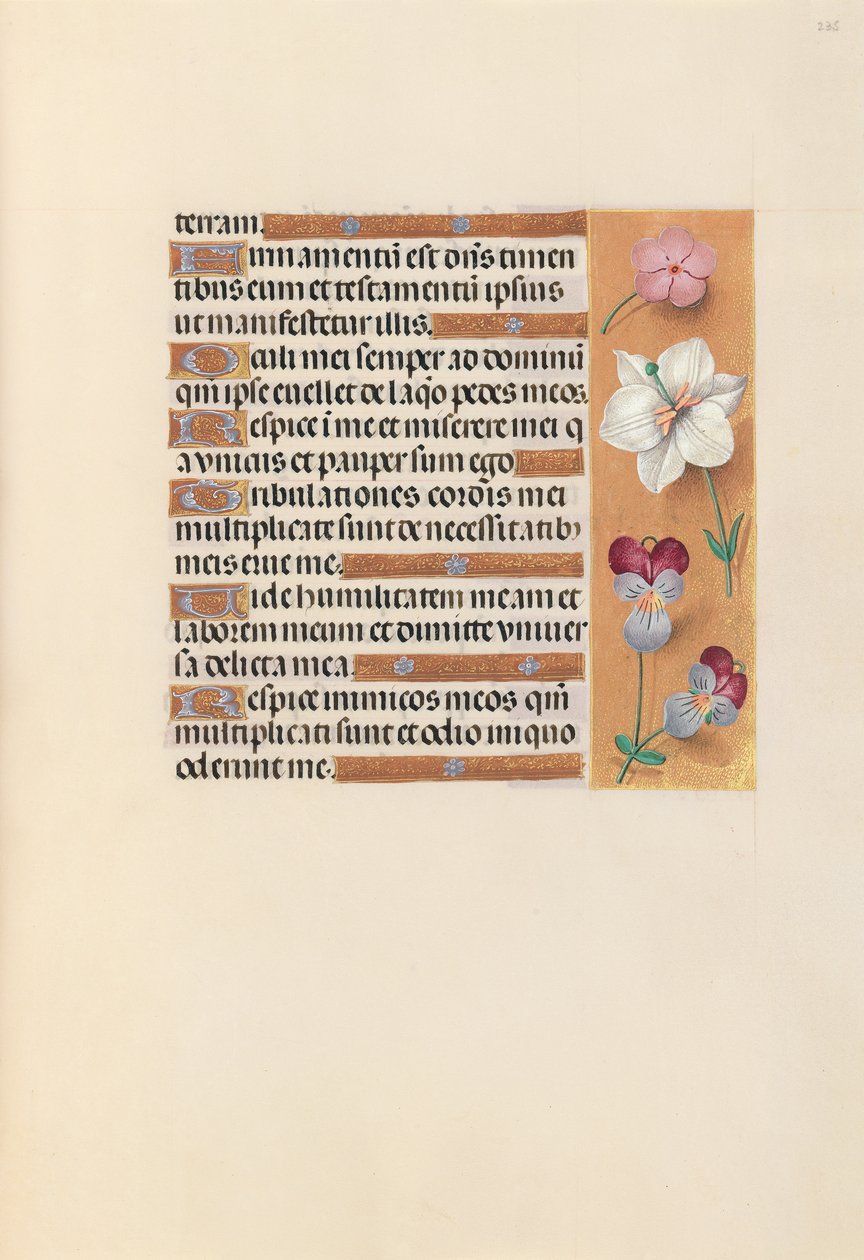 235
terram.
Firmamentū est dn̄s timen
tibus eum et testamentū ipsius
ut manifestetur illis.
Oculi mei semper ad dominū
qm̄ ipse euellet de laq̄o pedes meos.
Respice ī me et miserere mei q
a vnicus et pauper sum ego
Tribulationes cordis mei
multiplicate sunt de necessitatib9
meis erue me.
Vide humilitatem meam et
laborem meum et dimitte vniuer
sa delicta mea.
Respice inimicos meos qm̄
multiplicati sunt et odio iniquo
oderunt me.